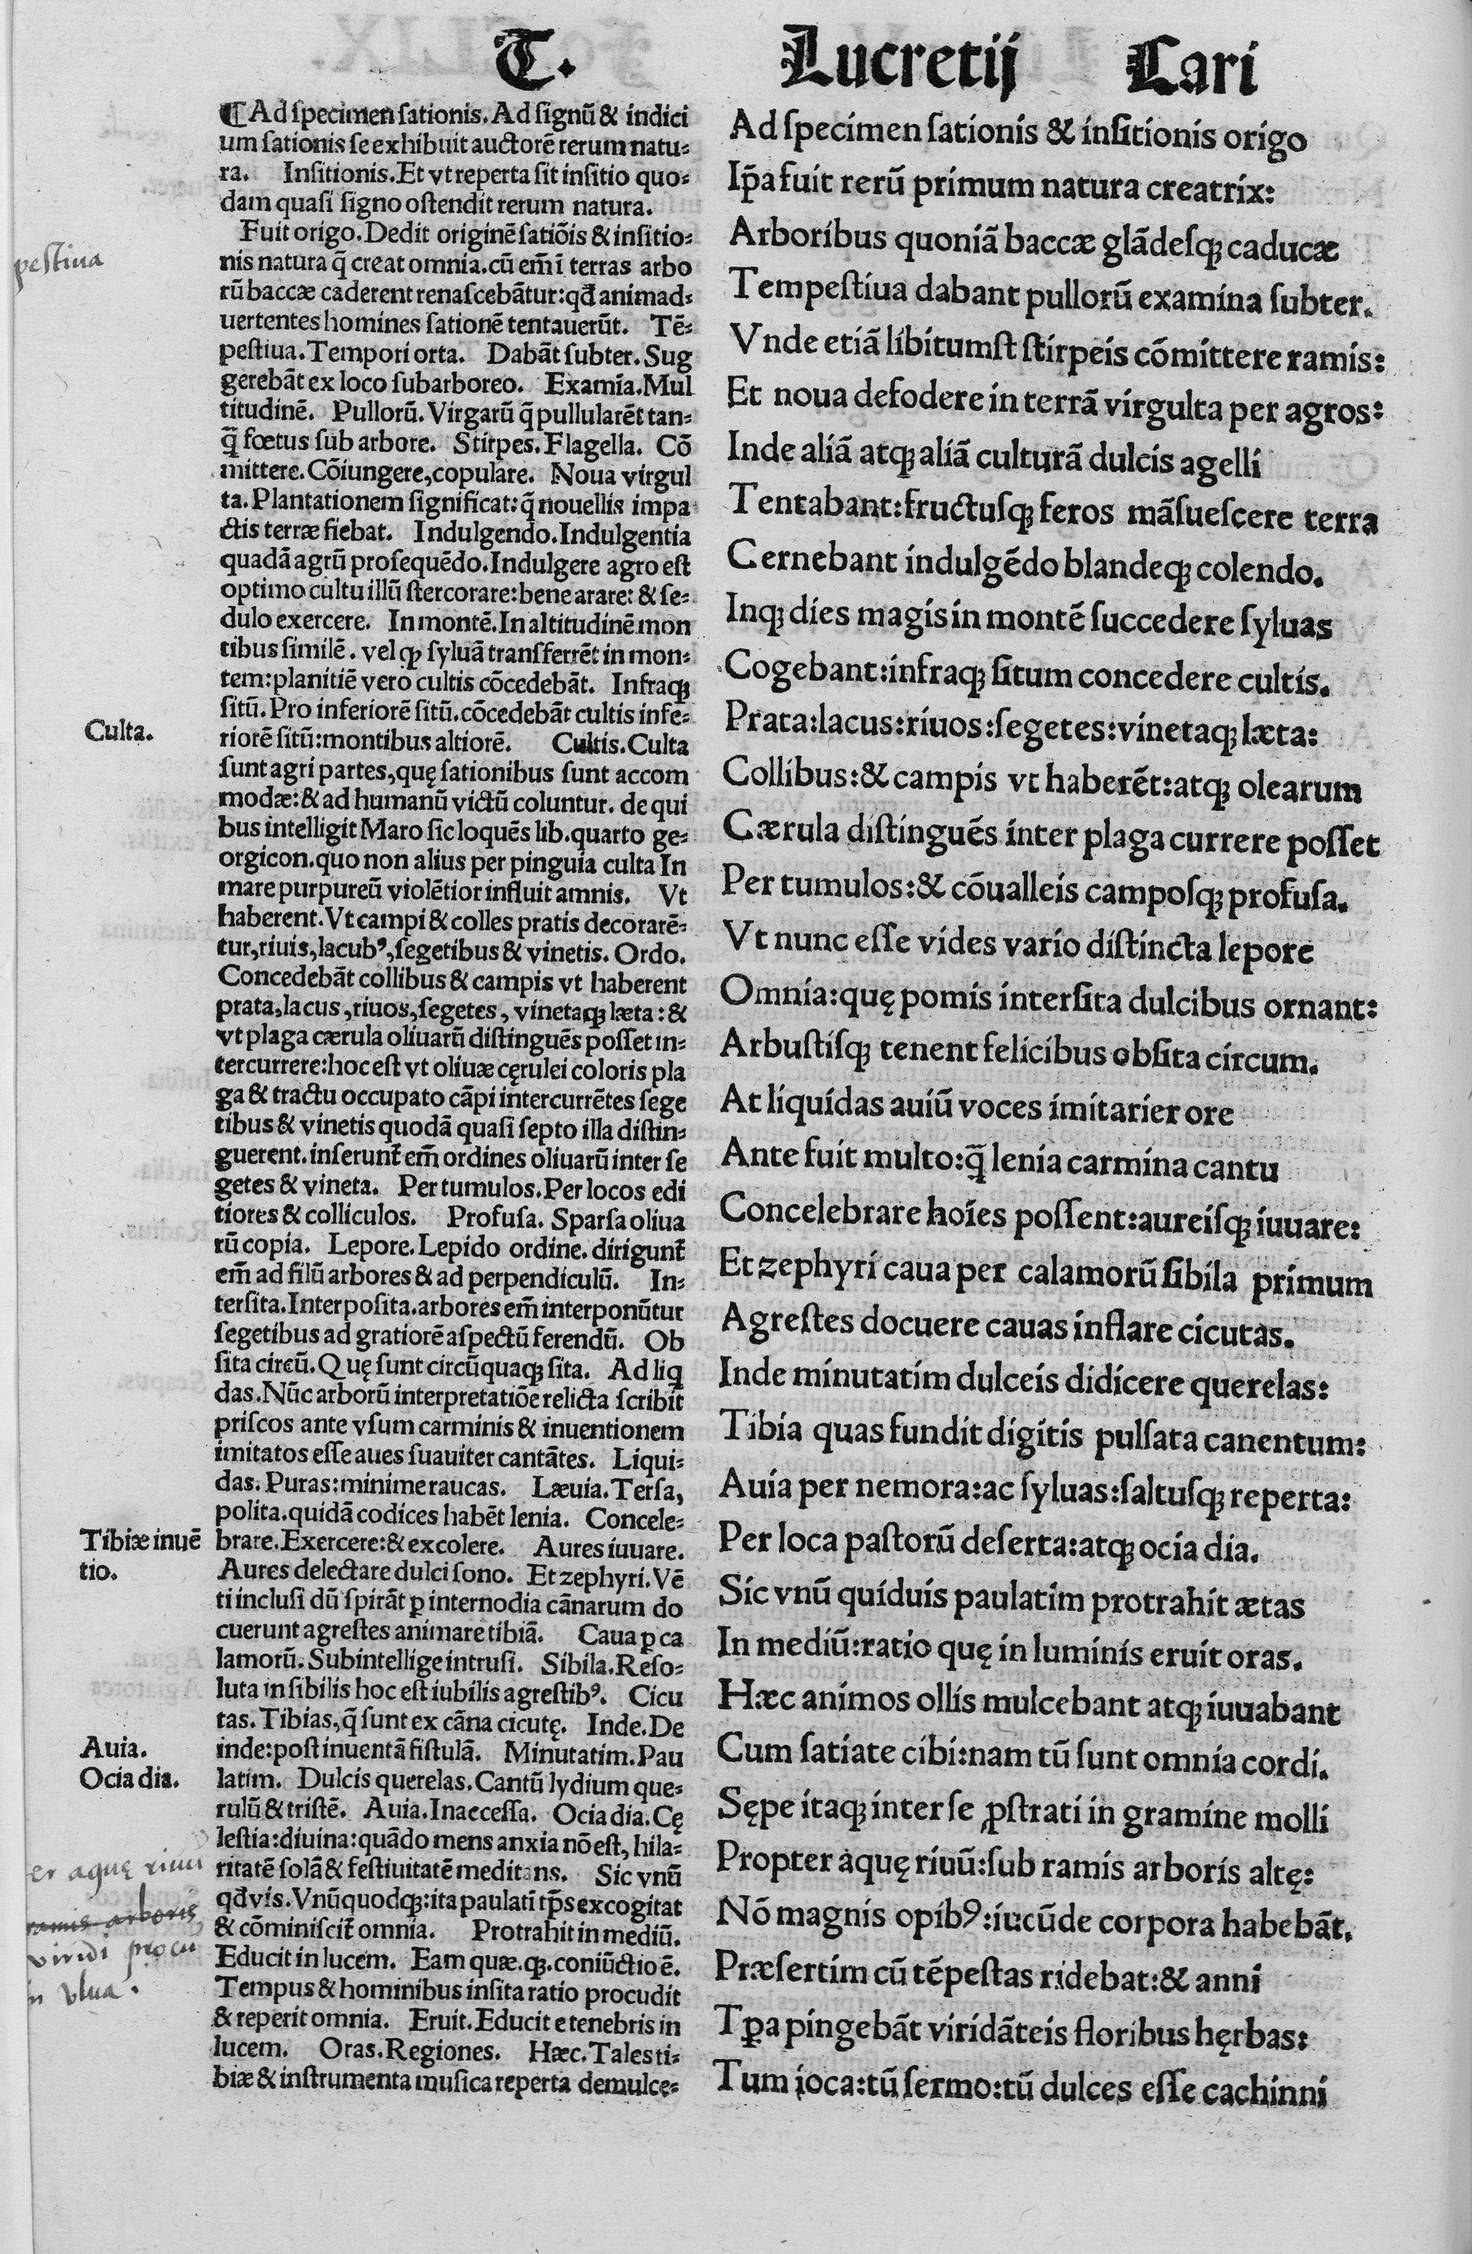 T. Lucretij Cari
¶ Ad specimen sationis. Ad signū & indici
um sationis se exhibuit auctorē rerum natu-
ra. Insitionis. Et vt reperta sit insitio quo-
dam quasi signo ostendit rerum natura.
Fuit origo. Dedit originē satiõis & insitio-
nis natura q̄ creat omnia. cū em̄ ī terras arbo
rū baccæ caderent renascebãtur: qđ animad-
uertentes homines sationē tentauerūt. Tē-
pestiua. Tempori orta. Dabãt subter. Sug
gerebãt ex loco subarboreo. Examīa. Mul
titudinē. Pullorū. Virgarū q̄ pullularēt tan-
q̄ fœtus sub arbore. Stirpes. Flagella. Cō
mittere. Cōiungere, copulare. Noua virgul
ta. Plantationem significat: q̄ nouellis impa
ctis terræ fiebat. Indulgendo. Indulgentia
quadã agrū prosequēdo. Indulgere agro est
optimo cultu illū stercorare: bene arare: & se-
dulo exercere. In montē. In altitudinē mon
tibus similē. vel qꝫ syluã transferrēt in mon-
tem: planitiē vero cultis cōcedebãt. Infraqꝫ
sitū. Pro inferiorē sitū. cōcedebãt cultis infe-
riorē sitū: montibus altiorē. Cultis. Culta
sunt agri partes, quę sationibus sunt accom
modæ: & ad humanū victū coluntur. de qui
bus intelligit Maro sic loquēs lib. quarto ge-
orgicon. quo non alius per pinguia culta In
mare purpureū violētior influit amnis. Vt
haberent. Vt campi & colles pratis decorarē-
tur, riuis, lacubꝰ, segetibus & vinetis. Ordo.
Concedebãt collibus & campis vt haberent
prata, lacus, riuos, segetes, vinetaqꝫ læta: &
vt plaga cærula oliuarū distinguēs posset in-
tercurrere: hoc est vt oliuæ cęrulei coloris pla
ga & tractu occupato cãpi intercurrētes sege
tibus & vinetis quodã quasi septo illa distin-
guerent. inserunt̄ em̄ ordines oliuarū inter se
getes & vineta. Per tumulos. Per locos edi
tiores & colliculos. Profusa. Sparsa oliua
rū copia. Lepore. Lepido ordine. dirigunt̄
em̄ ad filū arbores & ad perpendiculū. In-
tersita. Interposita. arbores em̄ interponūtur
segetibus ad gratiorē aspectū ferendū. Ob
sita circū. Quę sunt circūquaqꝫ sita. Ad liq̄
das. Nūc arborū interpretatiōe relicta scribit
priscos ante vsum carminis & inuentionem
imitatos esse aues suauiter cantãtes. Liqui-
das. Puras: minime raucas. Læuia. Tersa,
polita. quidã codices habēt lenia. Concele-
brare. Exercere: & excolere. Aures iuuare.
Aures delectare dulci sono. Et zephyri. Vē
ti inclusi dū spirãt ꝑ internodia cãnarum do
cuerunt agrestes animare tibiã. Caua ꝑ ca
lamorū. Subintellige intrusi. Sibila. Reso-
luta in sibilis hoc est iubilis agrestibꝰ. Cicu
tas. Tibias, q̄ sunt ex cãna cicutę. Inde. De
inde: post inuentã fistulã. Minutatim. Pau
latim. Dulcis querelas. Cantū lydium que-
rulū & tristē. Auia. Inaccessa. Ocia dia. Cę
lestia: diuina: quãdo mens anxia nō est, hila-
ritatē solã & festiuitatē meditans. Sic vnū
qđvis. Vnūquodqꝫ: ita paulatī tp̄s excogitat
& cōminiscit̄ omnia. Protrahit in mediū.
Educit in lucem. Eam quæ. qꝫ. coniūctio ē.
Tempus & hominibus insita ratio procudit
& reperit omnia. Eruit. Educit e tenebris in
lucem. Oras. Regiones. Hæc. Tales ti-
biæ & instrumenta musica reperta demulce-
pestiua
Culta.
Tibiæ inuē
tio.
Auia.
Ocia dia.
er aquę riuu
ramis arboris
viridi procu
n vlua.
Ad specimen sationis & insitionis origo
Ip̄a fuit rerū primum natura creatrix:
Arboribus quoniã baccæ glãdesqꝫ caducæ
Tempestiua dabant pullorū examina subter.
Vnde etiã libitumst stirpeis cōmittere ramis:
Et noua defodere in terrã virgulta per agros:
Inde aliã atqꝫ aliã culturã dulcis agelli
Tentabant: fructusqꝫ feros mãsuescere terra
Cernebant indulgēdo blandeqꝫ colendo.
Inqꝫ dies magis in montē succedere syluas
Cogebant: infraqꝫ situm concedere cultis.
Prata: lacus: riuos: segetes: vinetaqꝫ læta:
Collibus: & campis vt haberēt: atqꝫ olearum
Cærula distinguēs inter plaga currere posset
Per tumulos: & cōualleis camposqꝫ profusa.
Vt nunc esse vides vario distincta lepore
Omnia: quę pomis intersita dulcibus ornant:
Arbustisqꝫ tenent felicibus obsita circum.
At liquidas auiū voces imitarier ore
Ante fuit multo: q̄ lenia carmina cantu
Concelebrare hoīes possent: aureisqꝫ iuuare:
Et zephyri caua per calamorū sibila primum
Agrestes docuere cauas inflare cicutas.
Inde minutatim dulceis didicere querelas:
Tibia quas fundit digitis pulsata canentum:
Auia per nemora: ac syluas: saltusqꝫ reperta:
Per loca pastorū deserta: atqꝫ ocia dia.
Sic vnū quiduis paulatim protrahit ætas
In mediū: ratio quę in luminis eruit oras.
Hæc animos ollis mulcebant atqꝫ iuuabant
Cum satiate cibi: nam tū sunt omnia cordi.
Sępe itaqꝫ inter se ꝓstrati in gramine molli
Propter aquę riuū: sub ramis arboris altę:
Nō magnis opibꝰ: iucūde corpora habebãt.
Præsertim cū tēpestas ridebat: & anni
Tp̄a pingebãt viridãteis floribus hęrbas:
Tum ioca: tū sermo: tū dulces esse cachinni